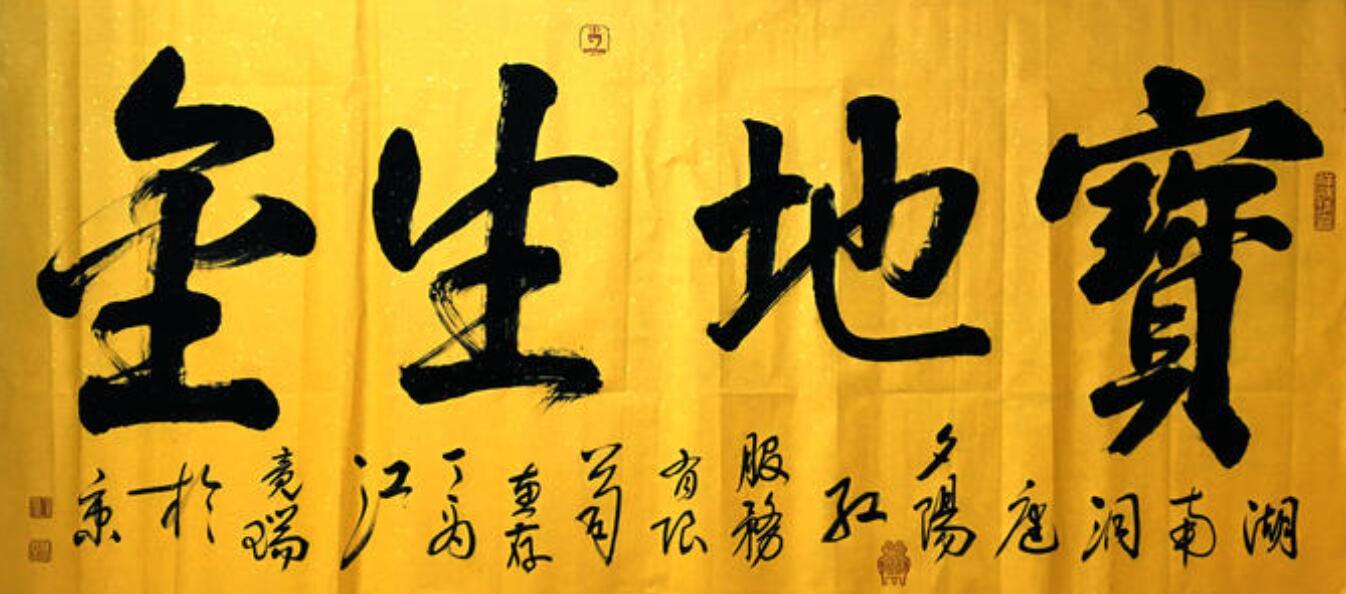 寶地生金
湖南洞庭夕陽紅服務有限公司惠存丁酉江竟瑞於京